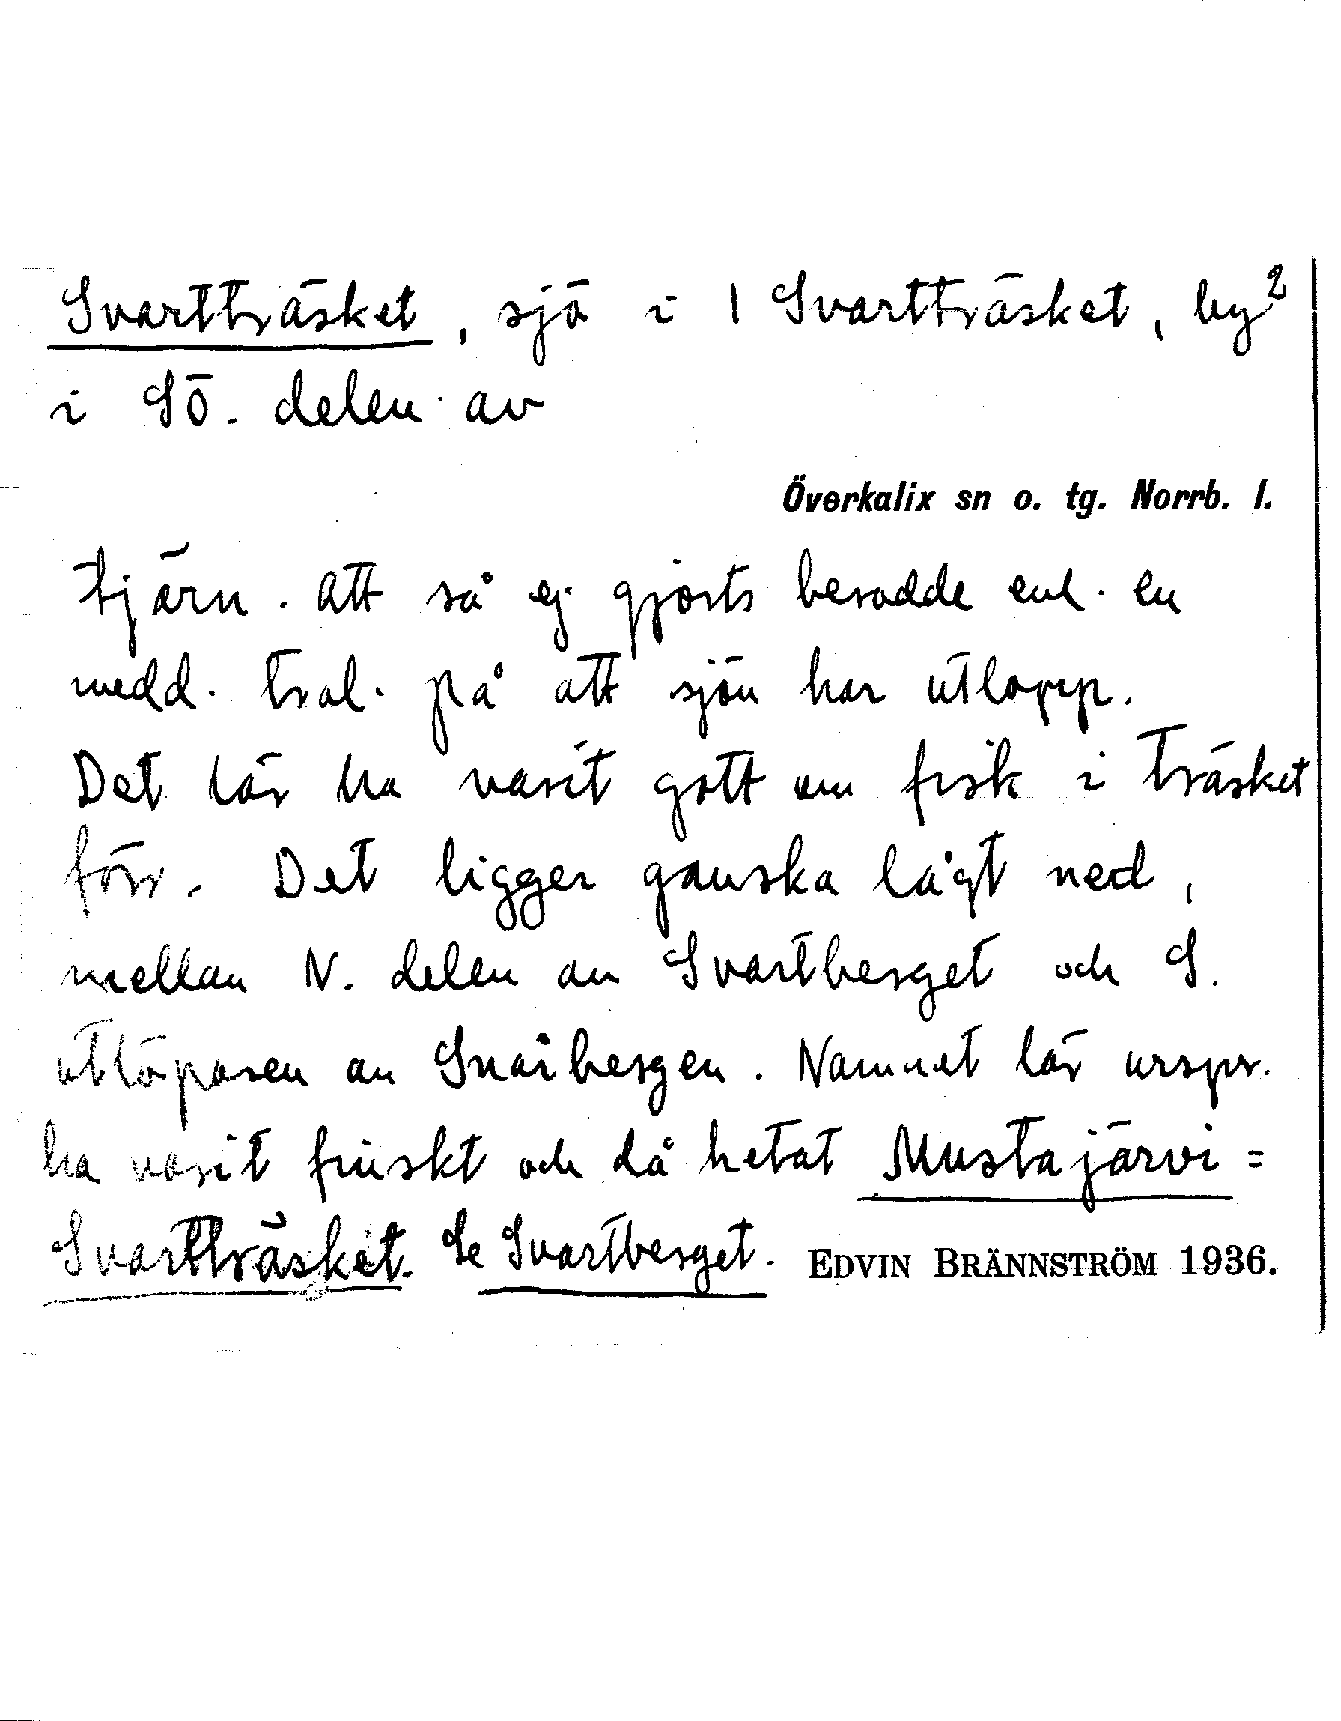 Svartträsket, sjö i 1 Svartträsket, by 2
i SÖ. delen av
Överkalix sn o. tg. Norrb. l.
tjärn. Att så ej gjorts berodde enl. en
medd. trol. på att sjön har utlopp.
Det lär ha varit gott om fisk i träsket
förr. Det ligger ganska lågt ned,
mellan N. delen av Svartberget och S.
utlöparen av Snårbergen. Namnet lär urspr.
ha varit finskt och då hetat Mustajärvi =
Svartträsket. Se Svartberget. EDVIN BRÄNNSTRÖM 1936.